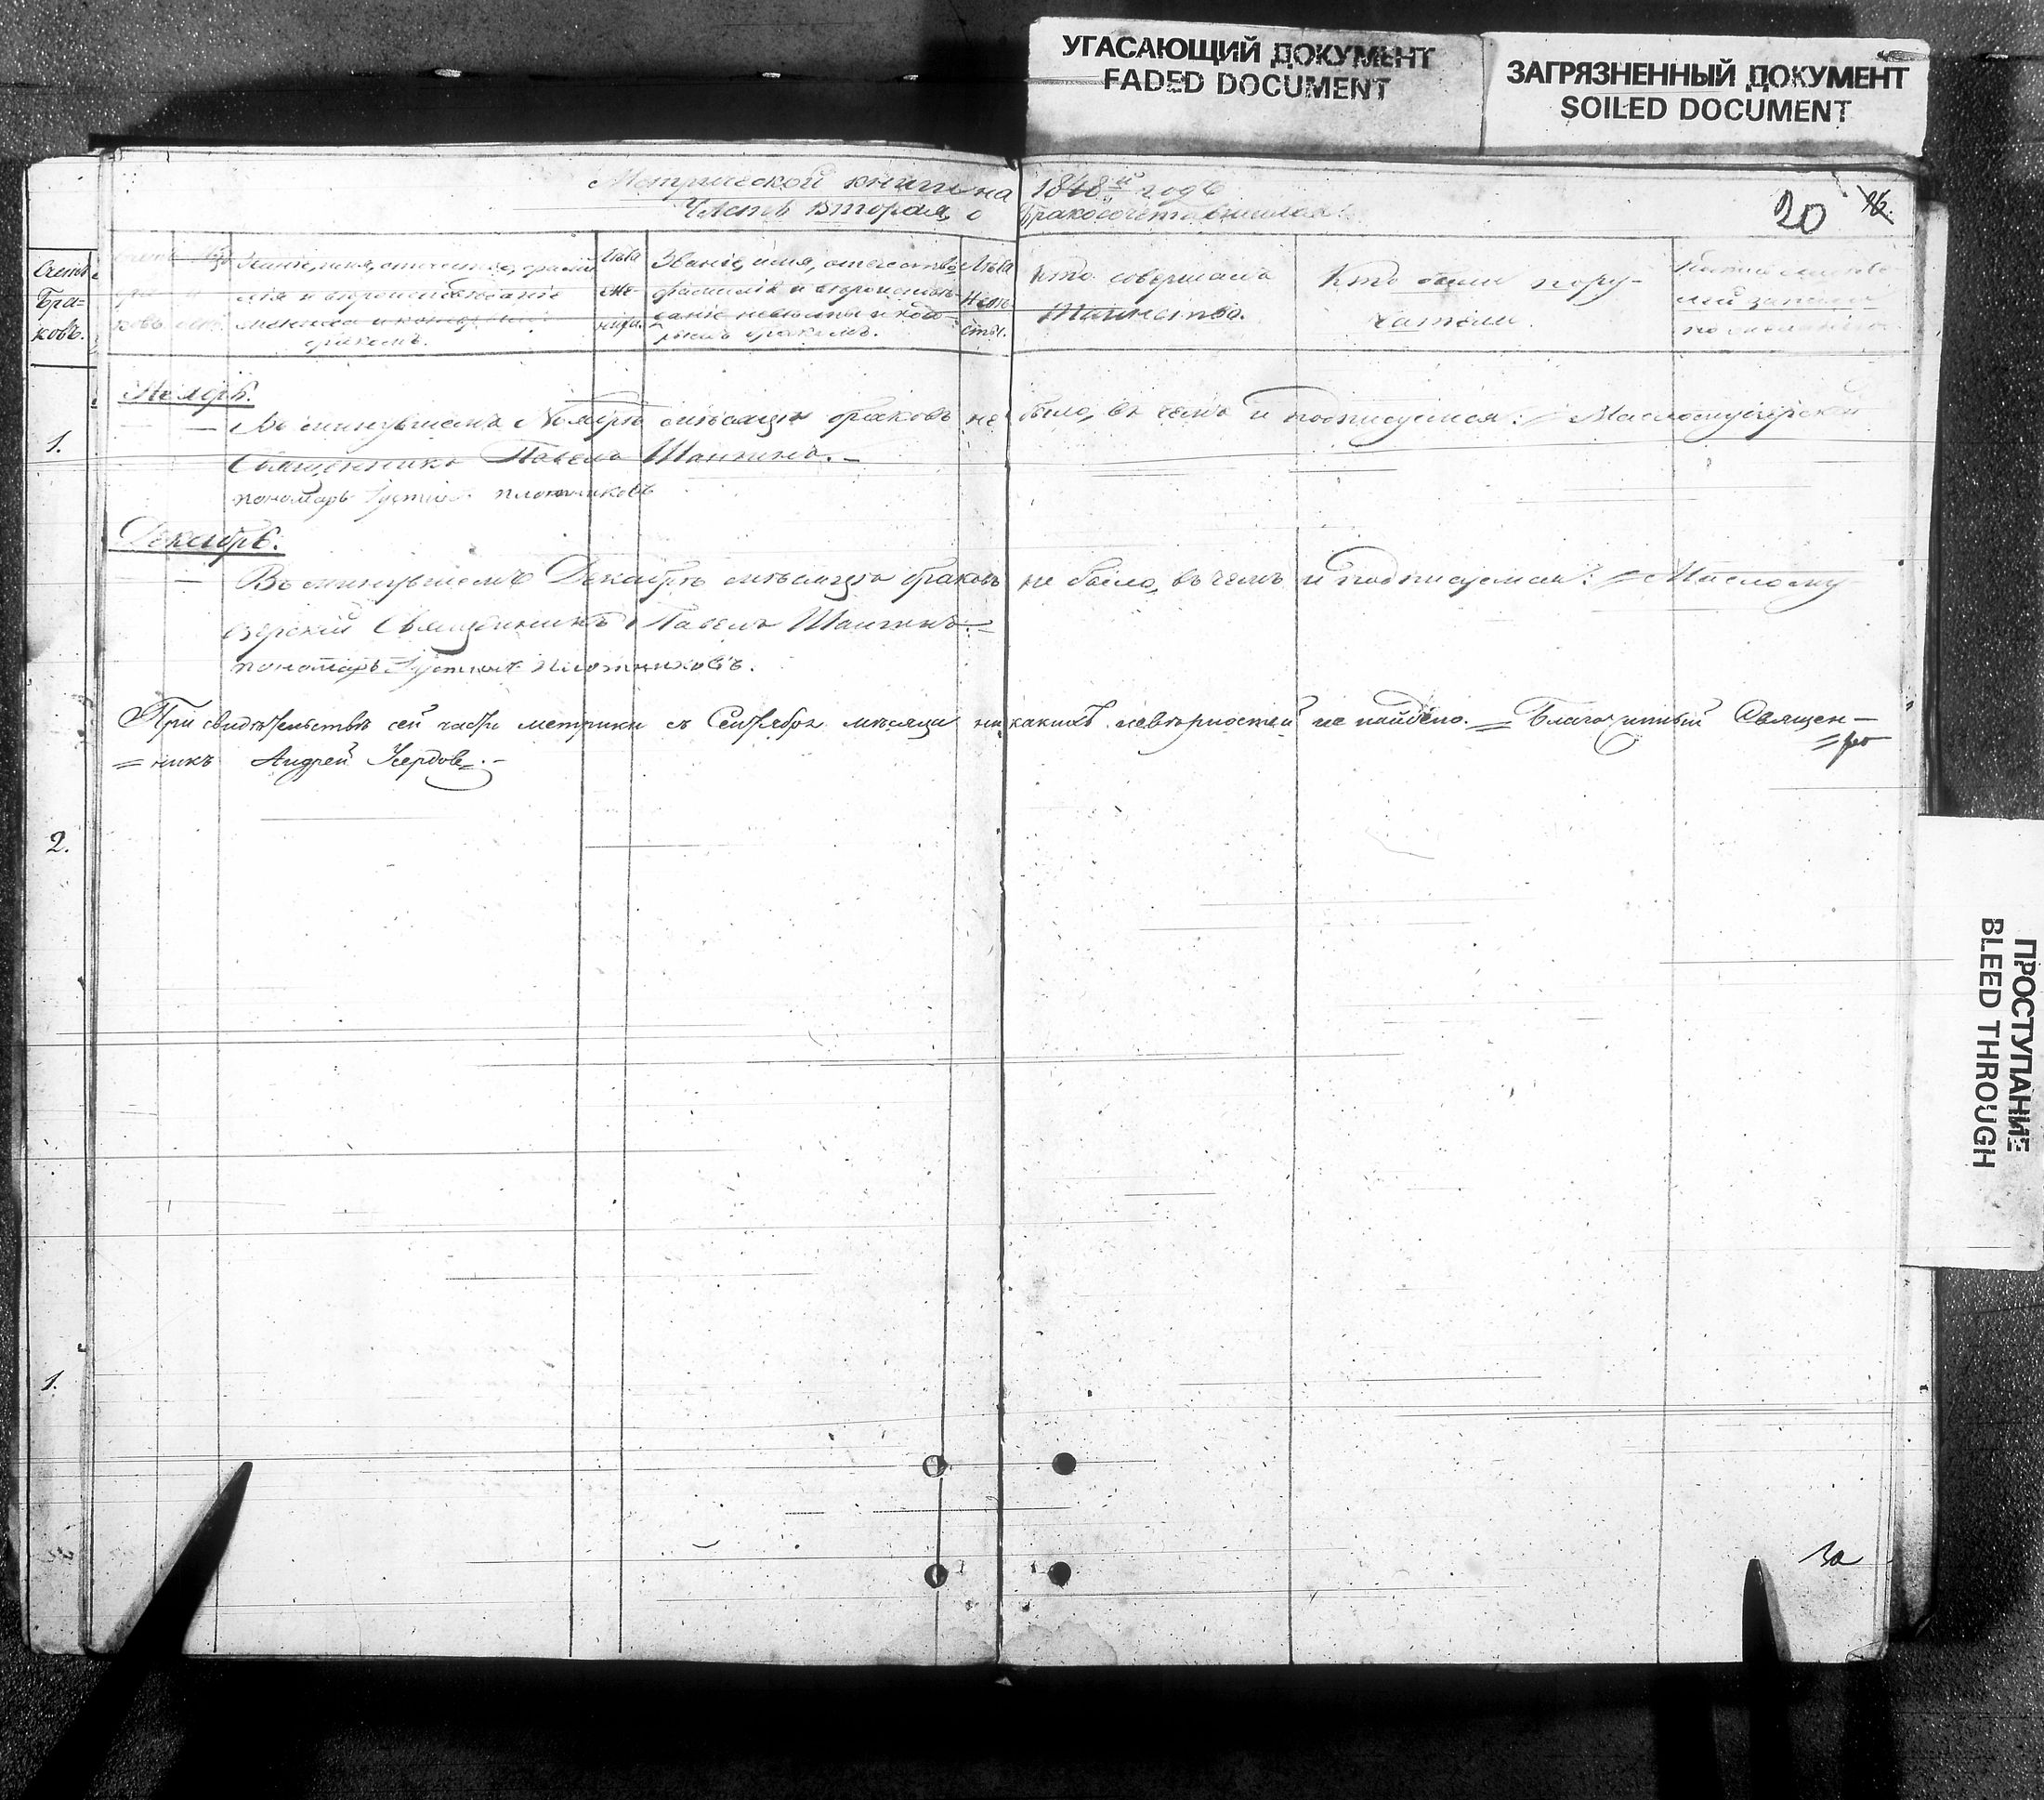 УГАСАЮЩИЙ ДОКУМЕНТ
FADED DOCUMENT
ЗАГРЯЗНЕННЫЙ ДОКУМЕНТ
SOILED DOCUMENT
Метрической книги на 1848й годъ
Часть вторая, о бракосочетавшихся
20
Счетъ
бра-
ковъ.
Званіе, имя, отчество, фами-
лія и вѣроисповѣданіе
жениха и которымъ
бракомъ.
Лѣта
же-
ниха.
Званіе, имя, отчество
фамилія и вѣроисповѣ-
даніе невѣсты и кото-
рымъ бракомъ.
Лѣта
Невѣ-
сты.
Кто совершалъ
Таинство.
Кто были пору-
чители.
Ноябрь.
Въ минувшемъ Ноябрѣ мѣсяцѣ браковъ не было, въ чемъ и подписуемся:
Священникъ Павелъ Шангинъ.
пономарь плотниковъ
1.
Декабрь.
Въ минувшемъ Декабрѣ мѣсяцѣ браковъ не было, въ чемъ и подписуемся: Масло
Священникъ Павелъ Шангинъ.
пономарь плотниковъ.
При свидѣтельствѣ сей части метрики съ Сентября мѣсяца никакихъ невѣрностей не найдено. = Благочинный Священ-
=никъ Андрей
2.
1.
ПРОСТУПАНИЕ
BLEED THROUGH